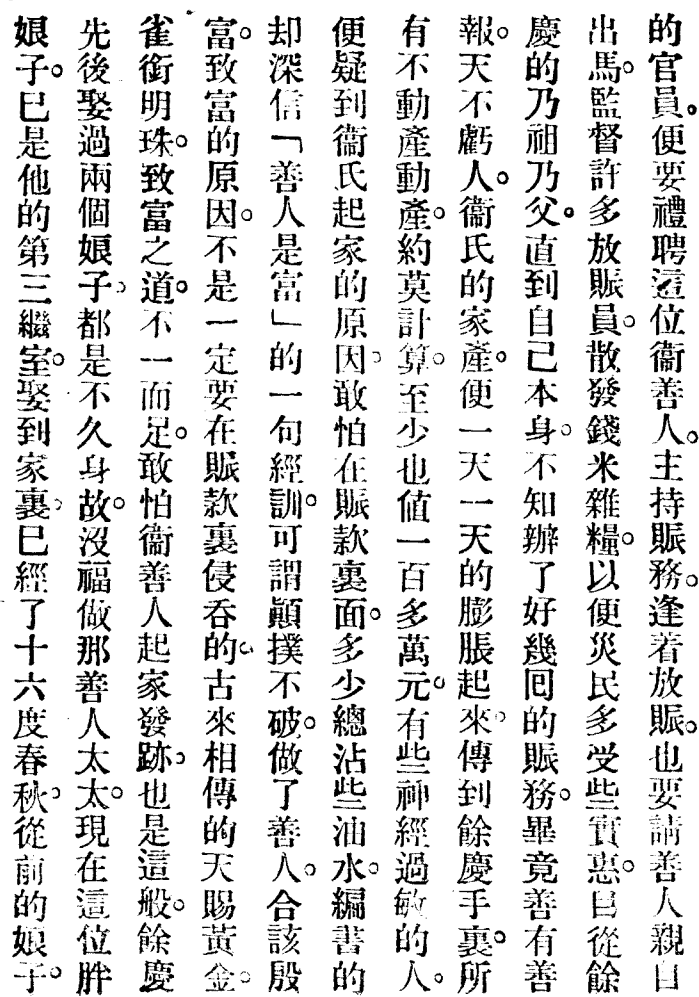 的官員。便要禮聘這位衞善人。主持賑務。逢着放賑。也要請善人親自
出馬。監督許多放賑員。散發錢米雜糧。以便災民多受些實惠。自從餘
慶的乃祖乃父。直到自己本身。不知辦了好幾回的賑務。畢竟善有善
報。天不虧人。衞氏的家產。便一天一天的膨脹起來。傳到餘慶手裏。所
有不動產動產。約莫計算。至少也値一百多萬元。有些神經過敏的人。
便疑到衞氏起家的原因。敢怕在賑款裏面。多少總沾些油水。編書的
却深信「善人是富」的一句經訓。可謂顚撲不破。做了善人。合該殷
富。致富的原因。不是一定要在賑款裏侵吞的。古來相傳的天賜黃金。
雀銜明珠。致富之道。不一而足。敢怕衞善人起家發跡。也是這般。餘慶
先後娶過兩個娘子。都是不久身故。沒福做那善人太太。現在這位胖
娘子。已是他的第三繼室。娶到家裏。已經了十六度春秋。從前的娘子。